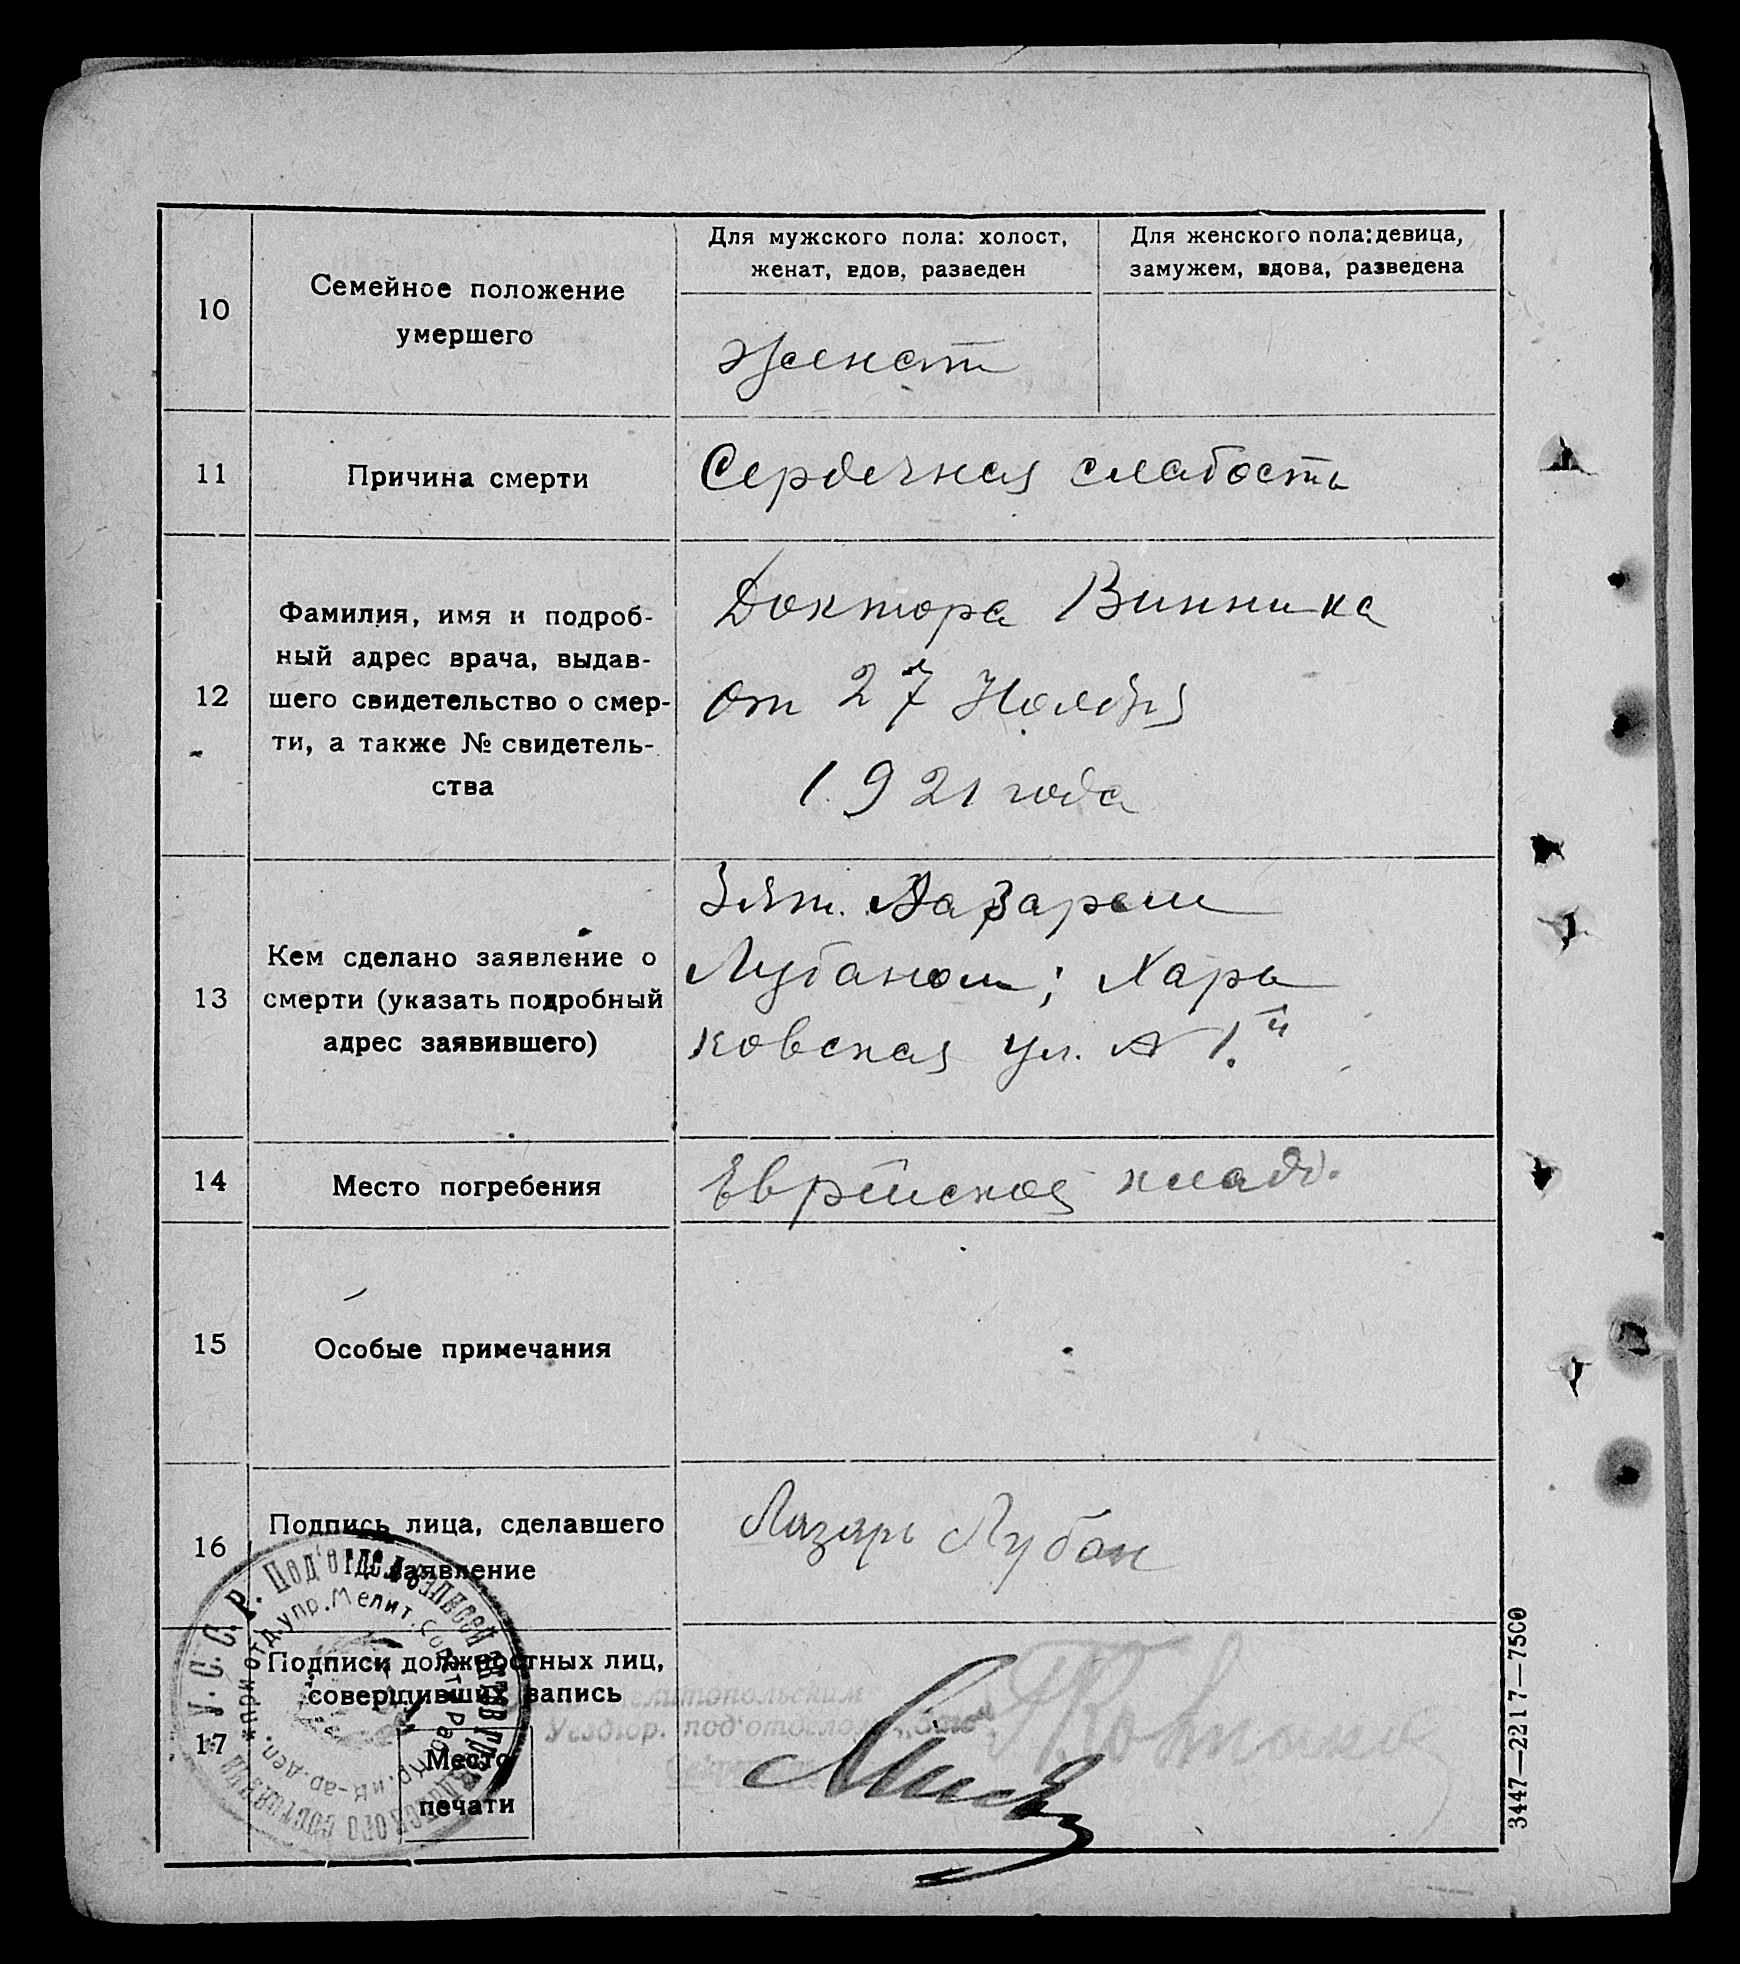 10
Семейное положение
умершего
Для мужского пола: холост,
женат, вдов, разведен
Для женского пола: девица,
замужем, вдова, разведена
женат
11
Причина смерти
Сердечная слабость
12
Фамилия, имя и подроб-
ный адрес врача, выдав-
шего свидетельство о смер-
ти, а также № свидетель-
ства
Доктора Винника
от 27 Ноября
1921 года
13
Кем сделано заявление о
смерти (указать подробный
адрес заявившего)
Зят. Лазарем
Лубаном; Харь
ковская ул. № 1.
14
Место погребения
Еврейское кладб.
15
Особые примечания
16
Подпись лица, сделавшего
заявление
Лазарь Лубан
17
Подписи должностных лиц,
совершивших запись
Место
печати
У. С. С. Р. Под'отдел записей
при отд. упр. Мелит.
Мелитопольским
3447—2217—7500